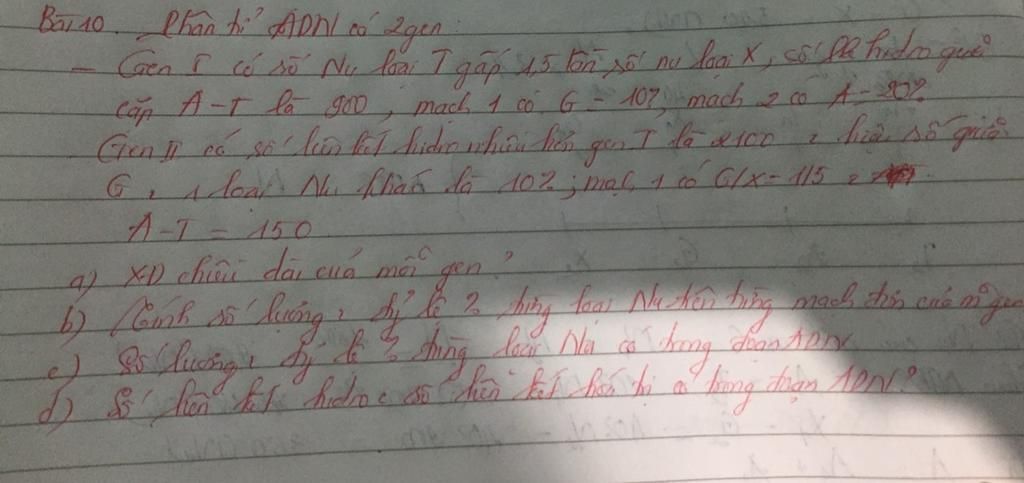 Bài 10. Phân tử ADN có 2 gen:
- Gen I có số Nu loại T gấp 1,5 lần số nu loại X, có lk hiđro giữa
cặp A-T là 900, mạch 1 có G = 10%, mạch 2 có A = 20%
Gen II có số liên kết hiđro nhiều hơn gen I là 2100, hiệu số giữa
G, 1 loại Nu khác là 10%; mạch 1 có G/X = 1/5,
A-T = 150
a) XĐ chiều dài của mỗi gen?
b) Tính số lượng, tỷ lệ % từng loại Nu trên từng mạch đơn của mỗi gen
c) Số lượng, tỷ lệ % từng loại Nu có trong đoạn ADN
d) Số liên kết hiđro, số liên kết hoá trị có trong đoạn ADN?